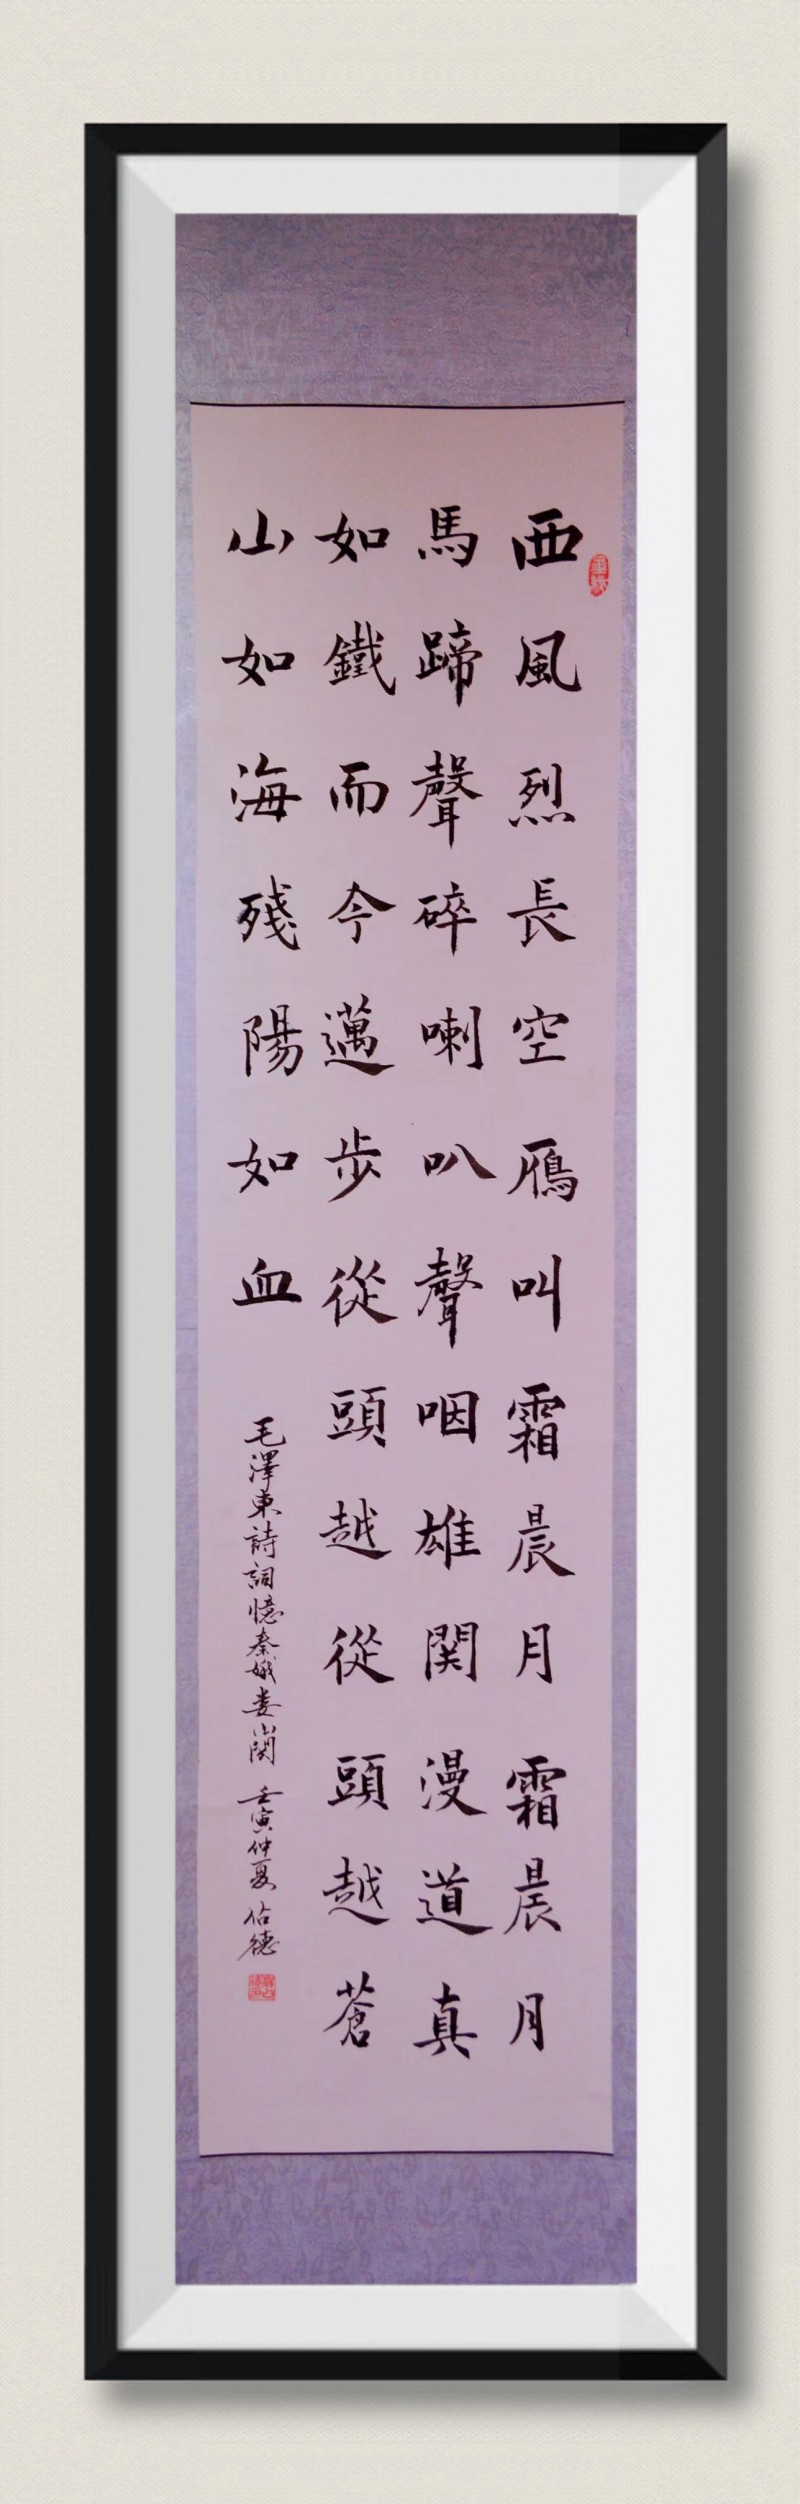 西風烈長空鴈叫霜晨月霜晨月
馬蹄聲碎喇叭聲咽雄関漫道真
如鐵而今邁步從頭越從頭越蒼
山如海殘陽如血
毛澤東詩詞憶秦娥娄山関 壬寅仲夏 佑德